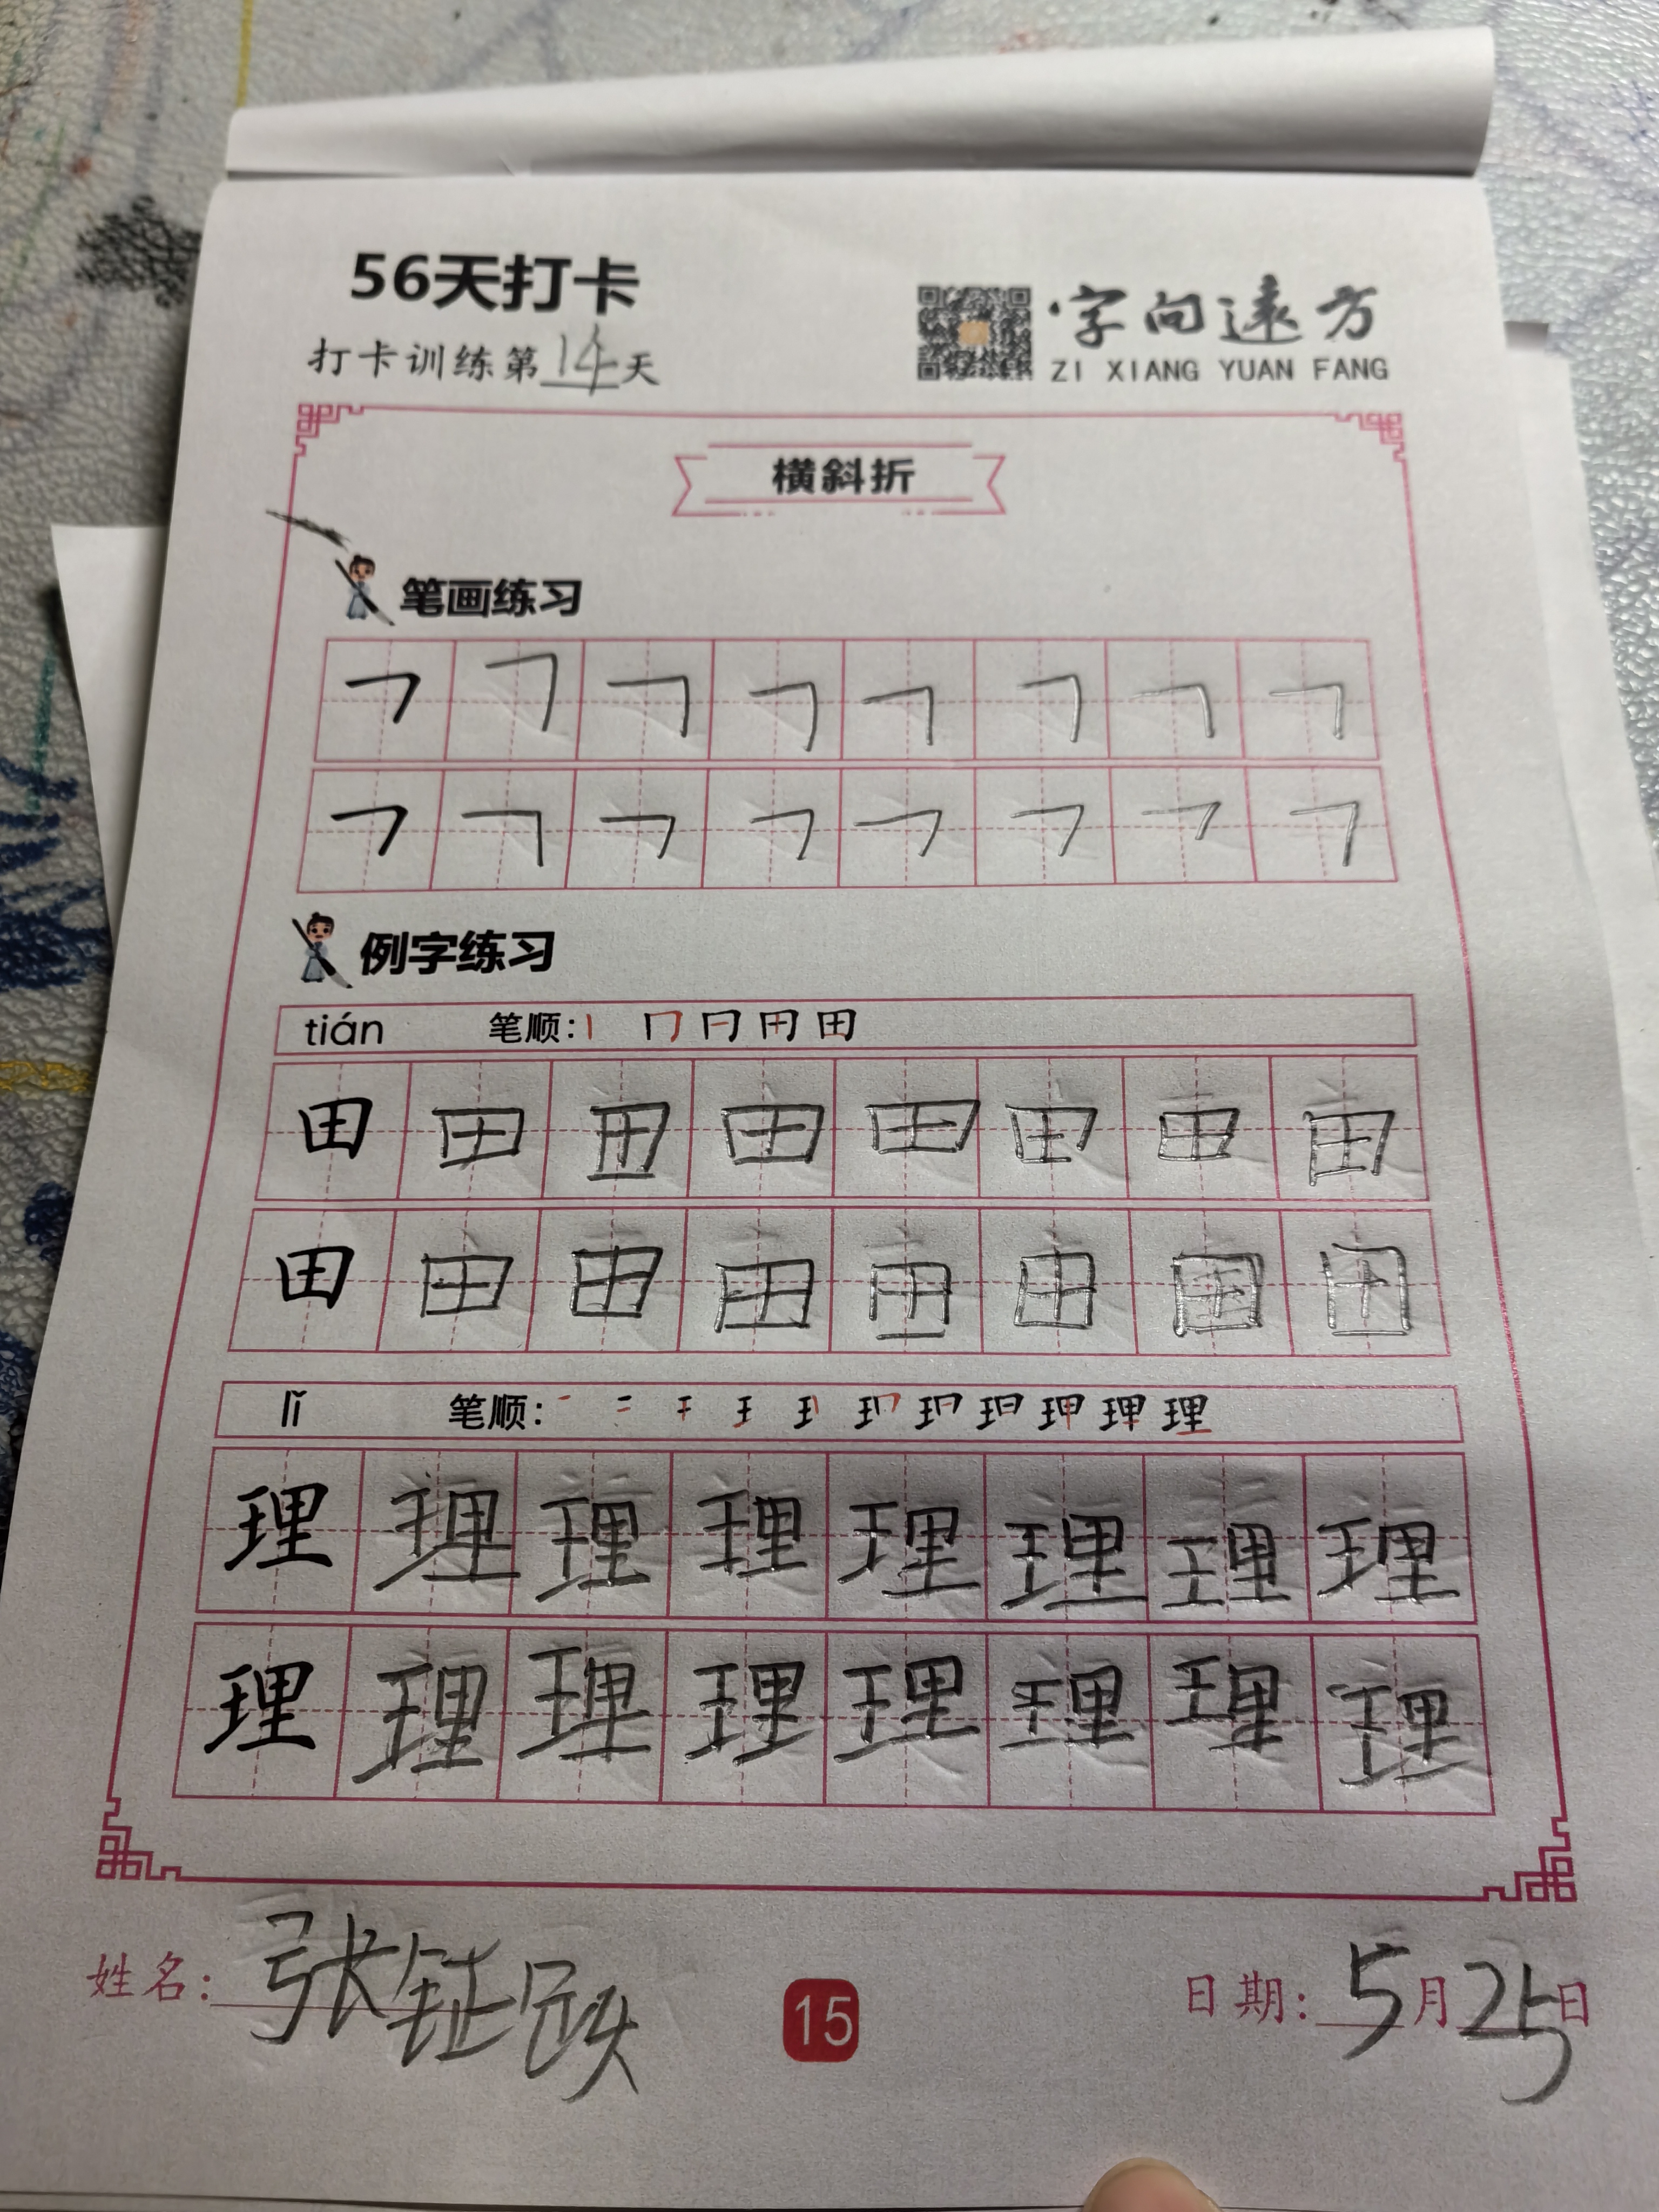 56天打卡
打卡训练第14天
字向远方
ZI XIANG YUAN FANG
横斜折
笔画练习
例字练习
tián 笔顺:
田 田 田 田 田 田 田 田
田 田 田 田 田 田 田 田
lǐ 笔顺:
理 理 理 理 理 理 理 理
理 理 理 理 理 理 理 理
姓名: 张钲
15
日期: 5月25日